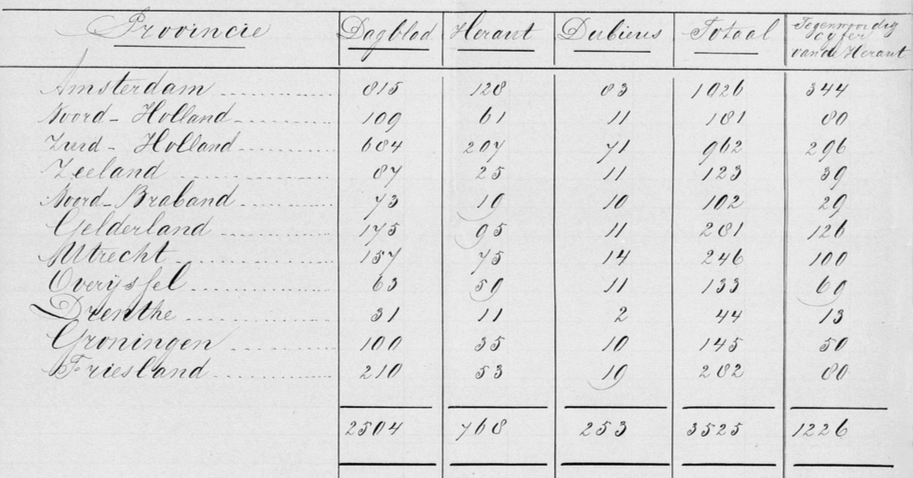 Provincie Dagblad Heraut Dubieus Totaal Tegenwoordig
cyfer
van de Heraut
Amsterdam 815 128 83 1026 344
Noord-Holland 109 61 11 181 80
Zuid-Holland 684 207 71 962 296
Zeeland 87 25 11 123 39
Noord-Braband 73 19 10 102 29
Gelderland 175 95 11 281 126
Utrecht 157 75 14 246 100
Overijssel 63 59 11 133 69
Drenthe 31 11 2 44 13
Groningen 100 35 10 145 50
Friesland 210 53 19 282 80
2504 768 253 3525 1226